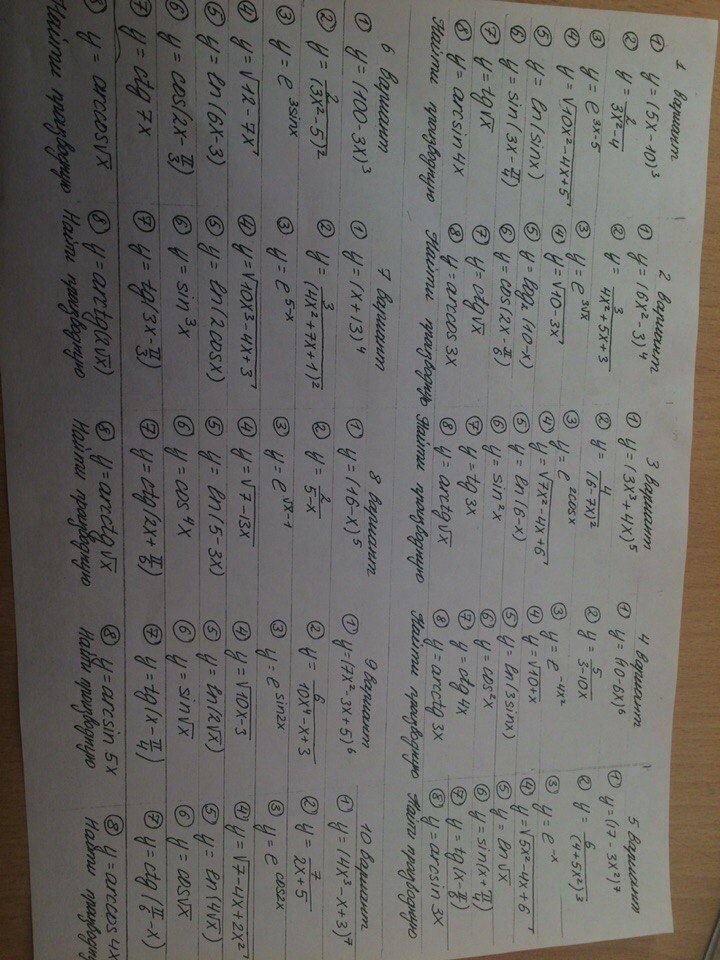 1 вариант
① y = (5x - 10)³
② y = 2/(3x² - 4)
③ y = e^(3x-5)
④ y = √(10x² - 4x + 5)
⑤ y = ln(sinx)
⑥ y = sin(3x - π/4)
⑦ y = tg√x
⑧ y = arcsin 4x
Найти производную
2 вариант
① y = (6x² - 3)⁴
② y = 3/(4x² + 5x + 3)
③ y = e^(3√x)
④ y = √(10 - 3x)
⑤ y = log₂(10 - x)
⑥ y = cos(2x - π/6)
⑦ y = ctg√x
⑧ y = arccos 3x
Найти производную
3 вариант
① y = (3x³ + 4x)⁵
② y = 4/(6 - 7x)²
③ y = e^(2cosx)
④ y = √(7x² - 4x + 6)
⑤ y = ln(6 - x)
⑥ y = sin²x
⑦ y = tg 3x
⑧ y = arctg√x
Найти производную
4 вариант
① y = (10 - 6x)⁶
② y = 5/(3 - 10x)
③ y = e^(-4x²)
④ y = √(10 + x)
⑤ y = ln(3sinx)
⑥ y = cos²x
⑦ y = ctg 4x
⑧ y = arctg 3x
Найти производную
5 вариант
① y = (7 - 3x²)⁷
② y = 6/(4 + 5x²)³
③ y = e^(-x)
④ y = √(5x² - 4x + 6)
⑤ y = ln√x
⑥ y = sin(x + π/4)
⑦ y = tg(x - π/6)
⑧ y = arcsin 3x
Найти производную
6 вариант
① y = (100 - 3x)³
② y = 2/(3x² - 5)²
③ y = e^(3sinx)
④ y = √(12 - 7x)
⑤ y = ln(6x - 3)
⑥ y = cos(2x - π/3)
⑦ y = ctg 7x
⑧ y = arccos√x
Найти производную
7 вариант
① y = (x + 13)⁴
② y = 3/(4x² + 7x + 1)²
③ y = e^(5-x)
④ y = √(10x³ - 4x + 3)
⑤ y = ln(2cosx)
⑥ y = sin³x
⑦ y = tg(3x - π/3)
⑧ y = arctg(2√x)
Найти производную
8 вариант
① y = (16 - x)⁵
② y = 2/(5 - x)
③ y = e^(√x-1)
④ y = √(7 - 13x)
⑤ y = ln(5 - 3x)
⑥ y = cos⁴x
⑦ y = ctg(2x + π/6)
⑧ y = arctg√x
Найти производную
9 вариант
① y = (7x² - 3x + 5)⁶
② y = 6/(10x⁴ - x + 3)
③ y = e^(sin2x)
④ y = √(10x - 3)
⑤ y = ln(2√x)
⑥ y = sin√x
⑦ y = tg(x - π/4)
⑧ y = arcsin 5x
Найти производную
10 вариант
① y = (4x³ - x + 3)⁷
② y = 7/(2x + 5)
③ y = e^(cos2x)
④ y = √(7 - 4x + 2x²)
⑤ y = ln(4√x)
⑥ y = cos√x
⑦ y = ctg(π/2 - x)
⑧ y = arccos 4x
Найти